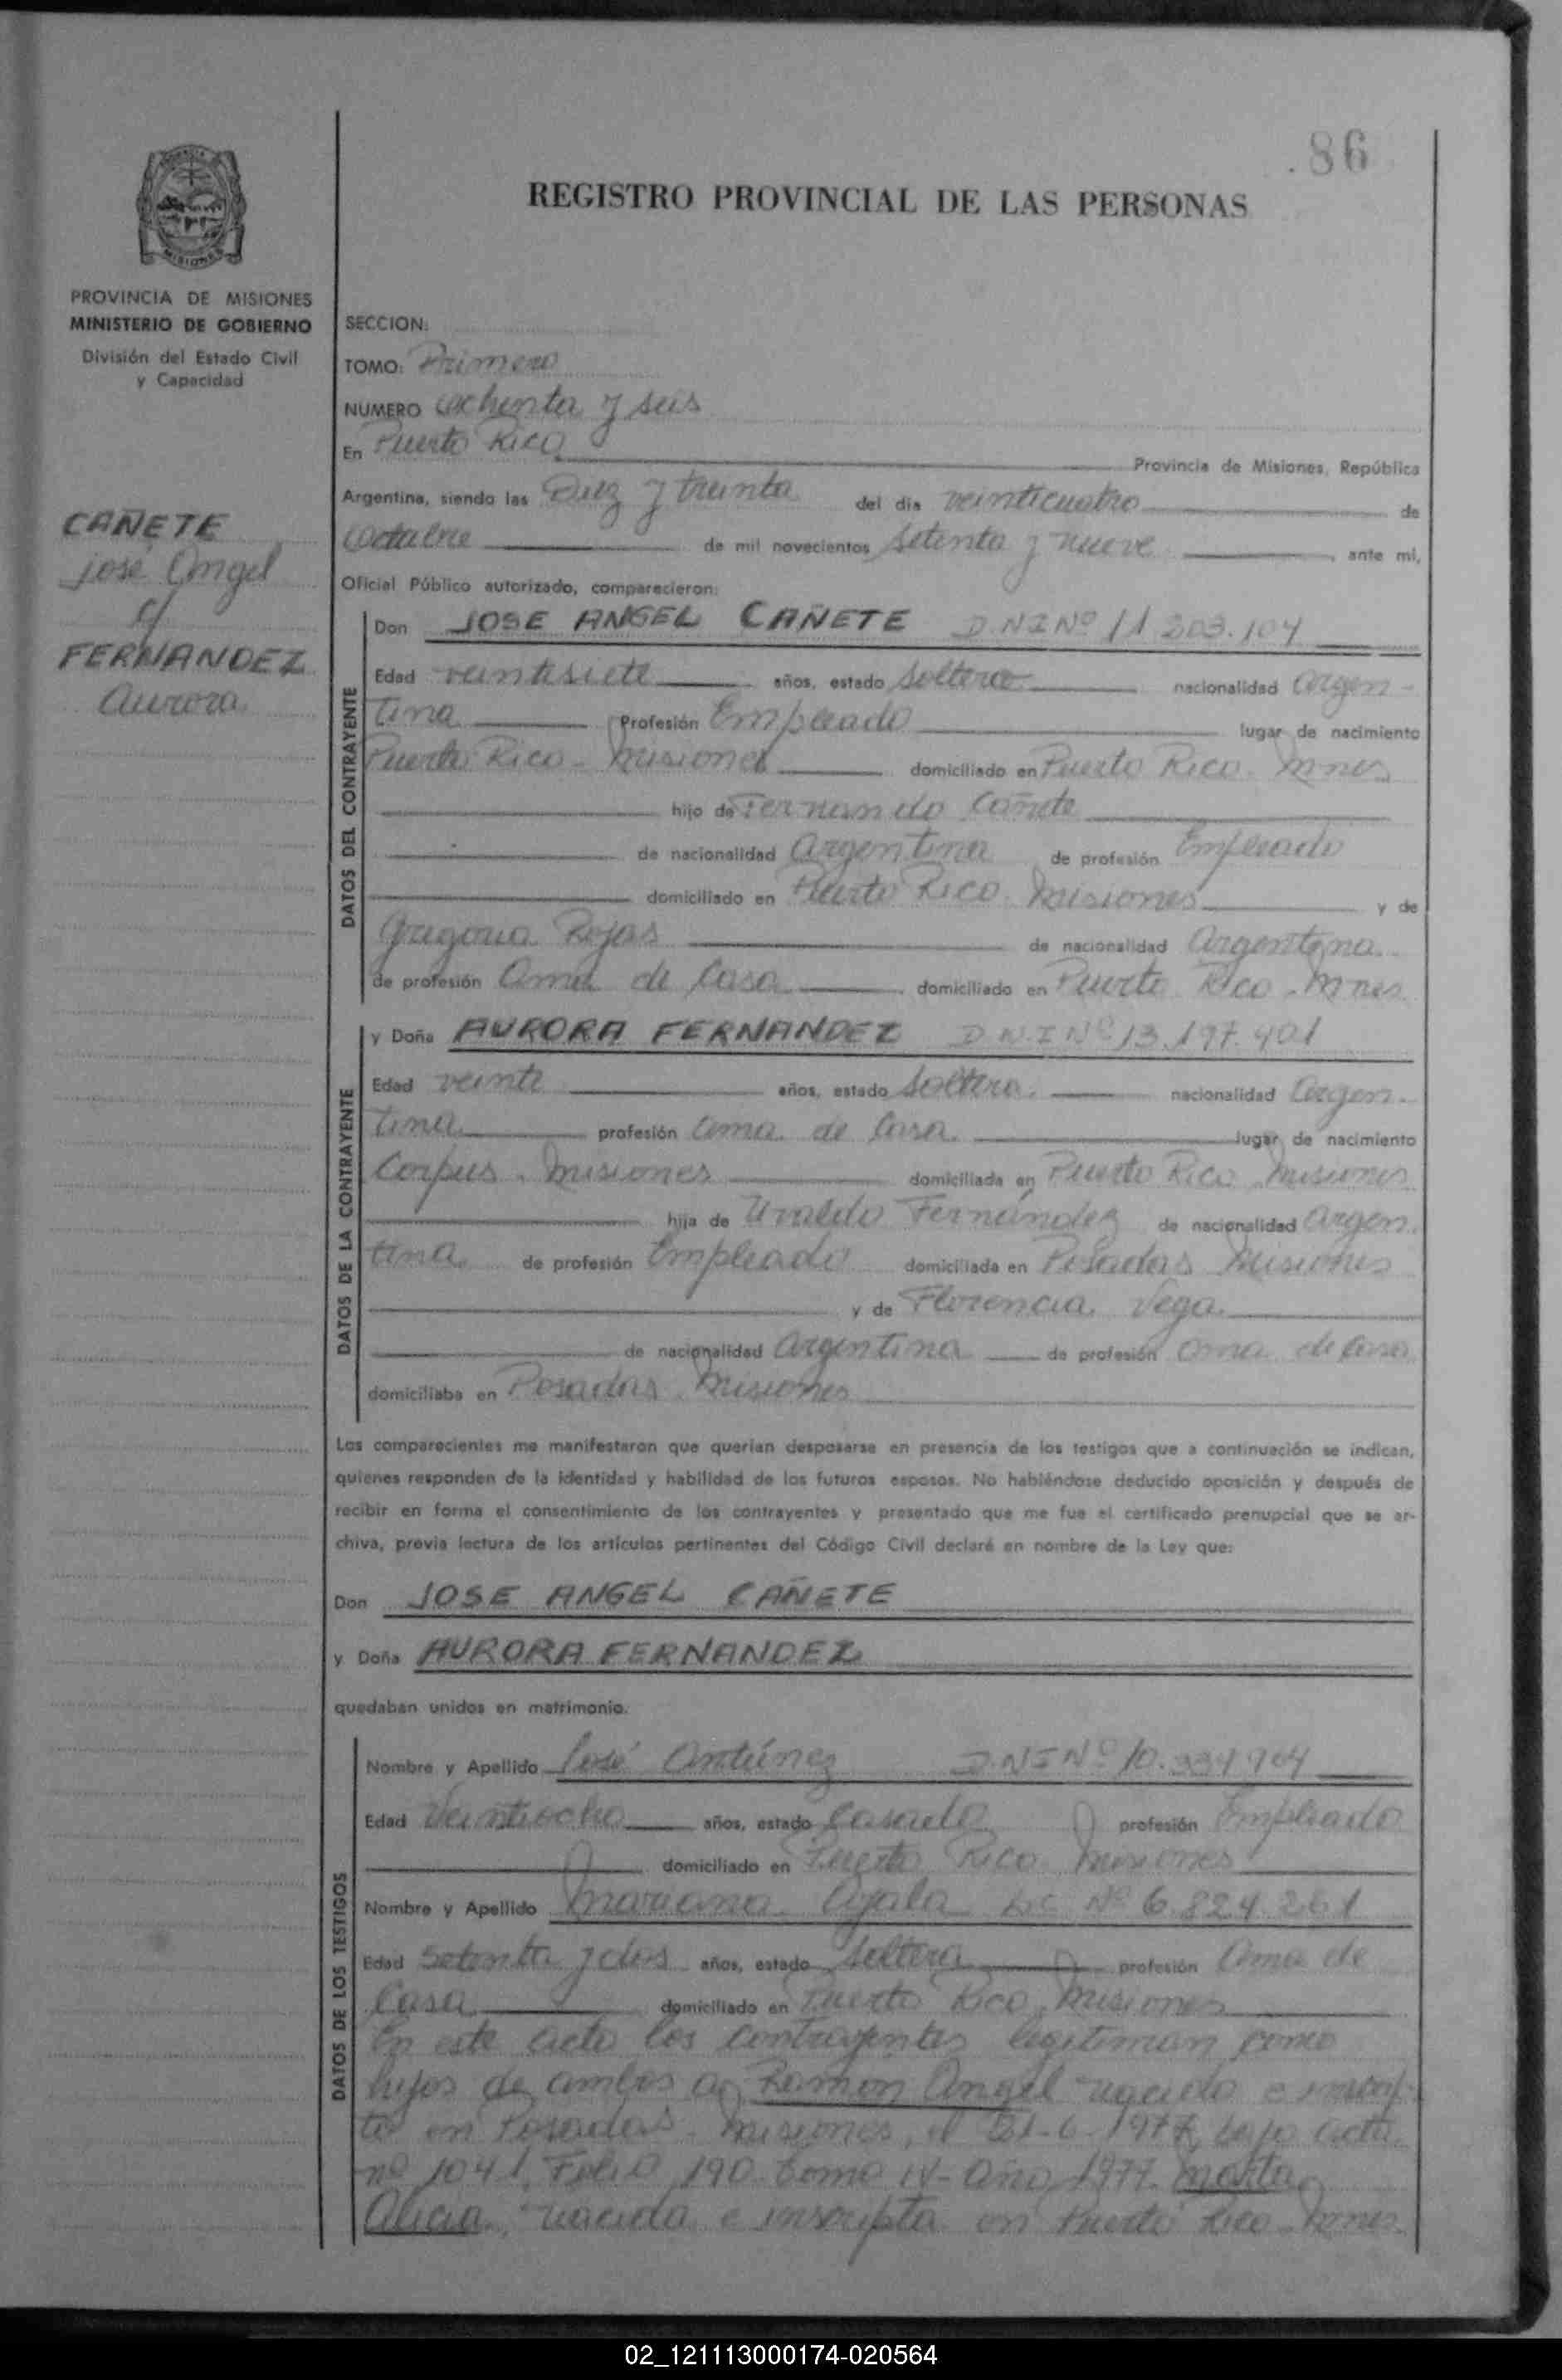 86
REGISTRO PROVINCIAL DE LAS PERSONAS
PROVINCIA DE MISIONES
MINISTERIO DE GOBIERNO
División del Estado Civil
y Capacidad
CAÑETE
José Angel
c/
FERNANDEZ
Aurora
SECCION:
TOMO: Primero
NUMERO Ochenta y seis
En Puerto Rico Provincia de Misiones, República
Argentina, siendo las Diez y treinta del día veinticuatro de
Octubre de mil novecientos setenta y nueve ante mí,
Oficial Público autorizado, comparecieron:
DATOS DEL CONTRAYENTE
Don JOSE ANGEL CAÑETE D.N.I Nº 11.203.104
Edad veintisiete años, estado Soltero nacionalidad Argen-
tina Profesión Empleado lugar de nacimiento
Puerto Rico - Misiones domiciliado en Puerto Rico. Mnes
hijo de Fernando Cañete
de nacionalidad Argentina de profesión Empleado
domiciliado en Puerto Rico. Misiones y de
Gregoria Rojas de nacionalidad Argentina.
de profesión Ama de Casa domiciliado en Puerto Rico. Mnes
DATOS DE LA CONTRAYENTE
y Doña AURORA FERNANDEZ D.N.I Nº 13.197.401
Edad veinte años, estado Soltera. nacionalidad Argen.
tina profesión Ama de Casa lugar de nacimiento
Corpus. Misiones domiciliada en Puerto Rico. Misiones
hija de Uvaldo Fernández de nacionalidad Argen.
tina de profesión Empleado domiciliada en Posadas Misiones
y de Florencia Vega
de nacionalidad Argentina de profesión Ama de Casa
domiciliaba en Posadas. Misiones
Los comparecientes me manifestaron que querían desposarse en presencia de los testigos que a continuación se indican,
quienes responden de la identidad y habilidad de los futuros esposos. No habiéndose deducido oposición y después de
recibir en forma el consentimiento de los contrayentes y presentado que me fue el certificado prenupcial que se ar-
chiva, previa lectura de los artículos pertinentes del Código Civil declaré en nombre de la Ley que:
Don JOSE ANGEL CAÑETE
y Doña AURORA FERNANDEZ
quedaban unidos en matrimonio.
DATOS DE LOS TESTIGOS
Nombre y Apellido José Antúnez D.N.I Nº 10.334.904
Edad Veintiocho años, estado Casado profesión Empleado
domiciliado en Puerto Rico. Misiones
Nombre y Apellido Mariana Ayala Nº 6.824.261
Edad Setenta y dos años, estado Soltera profesión Ama de
Casa domiciliado en Puerto Rico. Misiones
En este acto los contrayentes legitiman como
hijos de ambos a: Ramon Angel nacido e inscrip-
to en Posadas. Misiones, el 21-6-1977, bajo acta
nº 1041, Folio 190. Tomo IV- Año 1977. Marta
Alicia, nacida e inscripta en Puerto Rico. Mnes
02_121113000174-020564